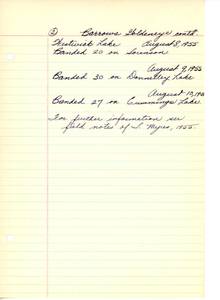 ① Barrows Goldeneye contd.
Lake August 8, 1955
Banded 20 on
August 9, 1955
Banded 30 on Donnelley Lake
August 10, 1955
Banded 27 on Cummings Lake
For further information see
field notes of S. Myres, 1955.